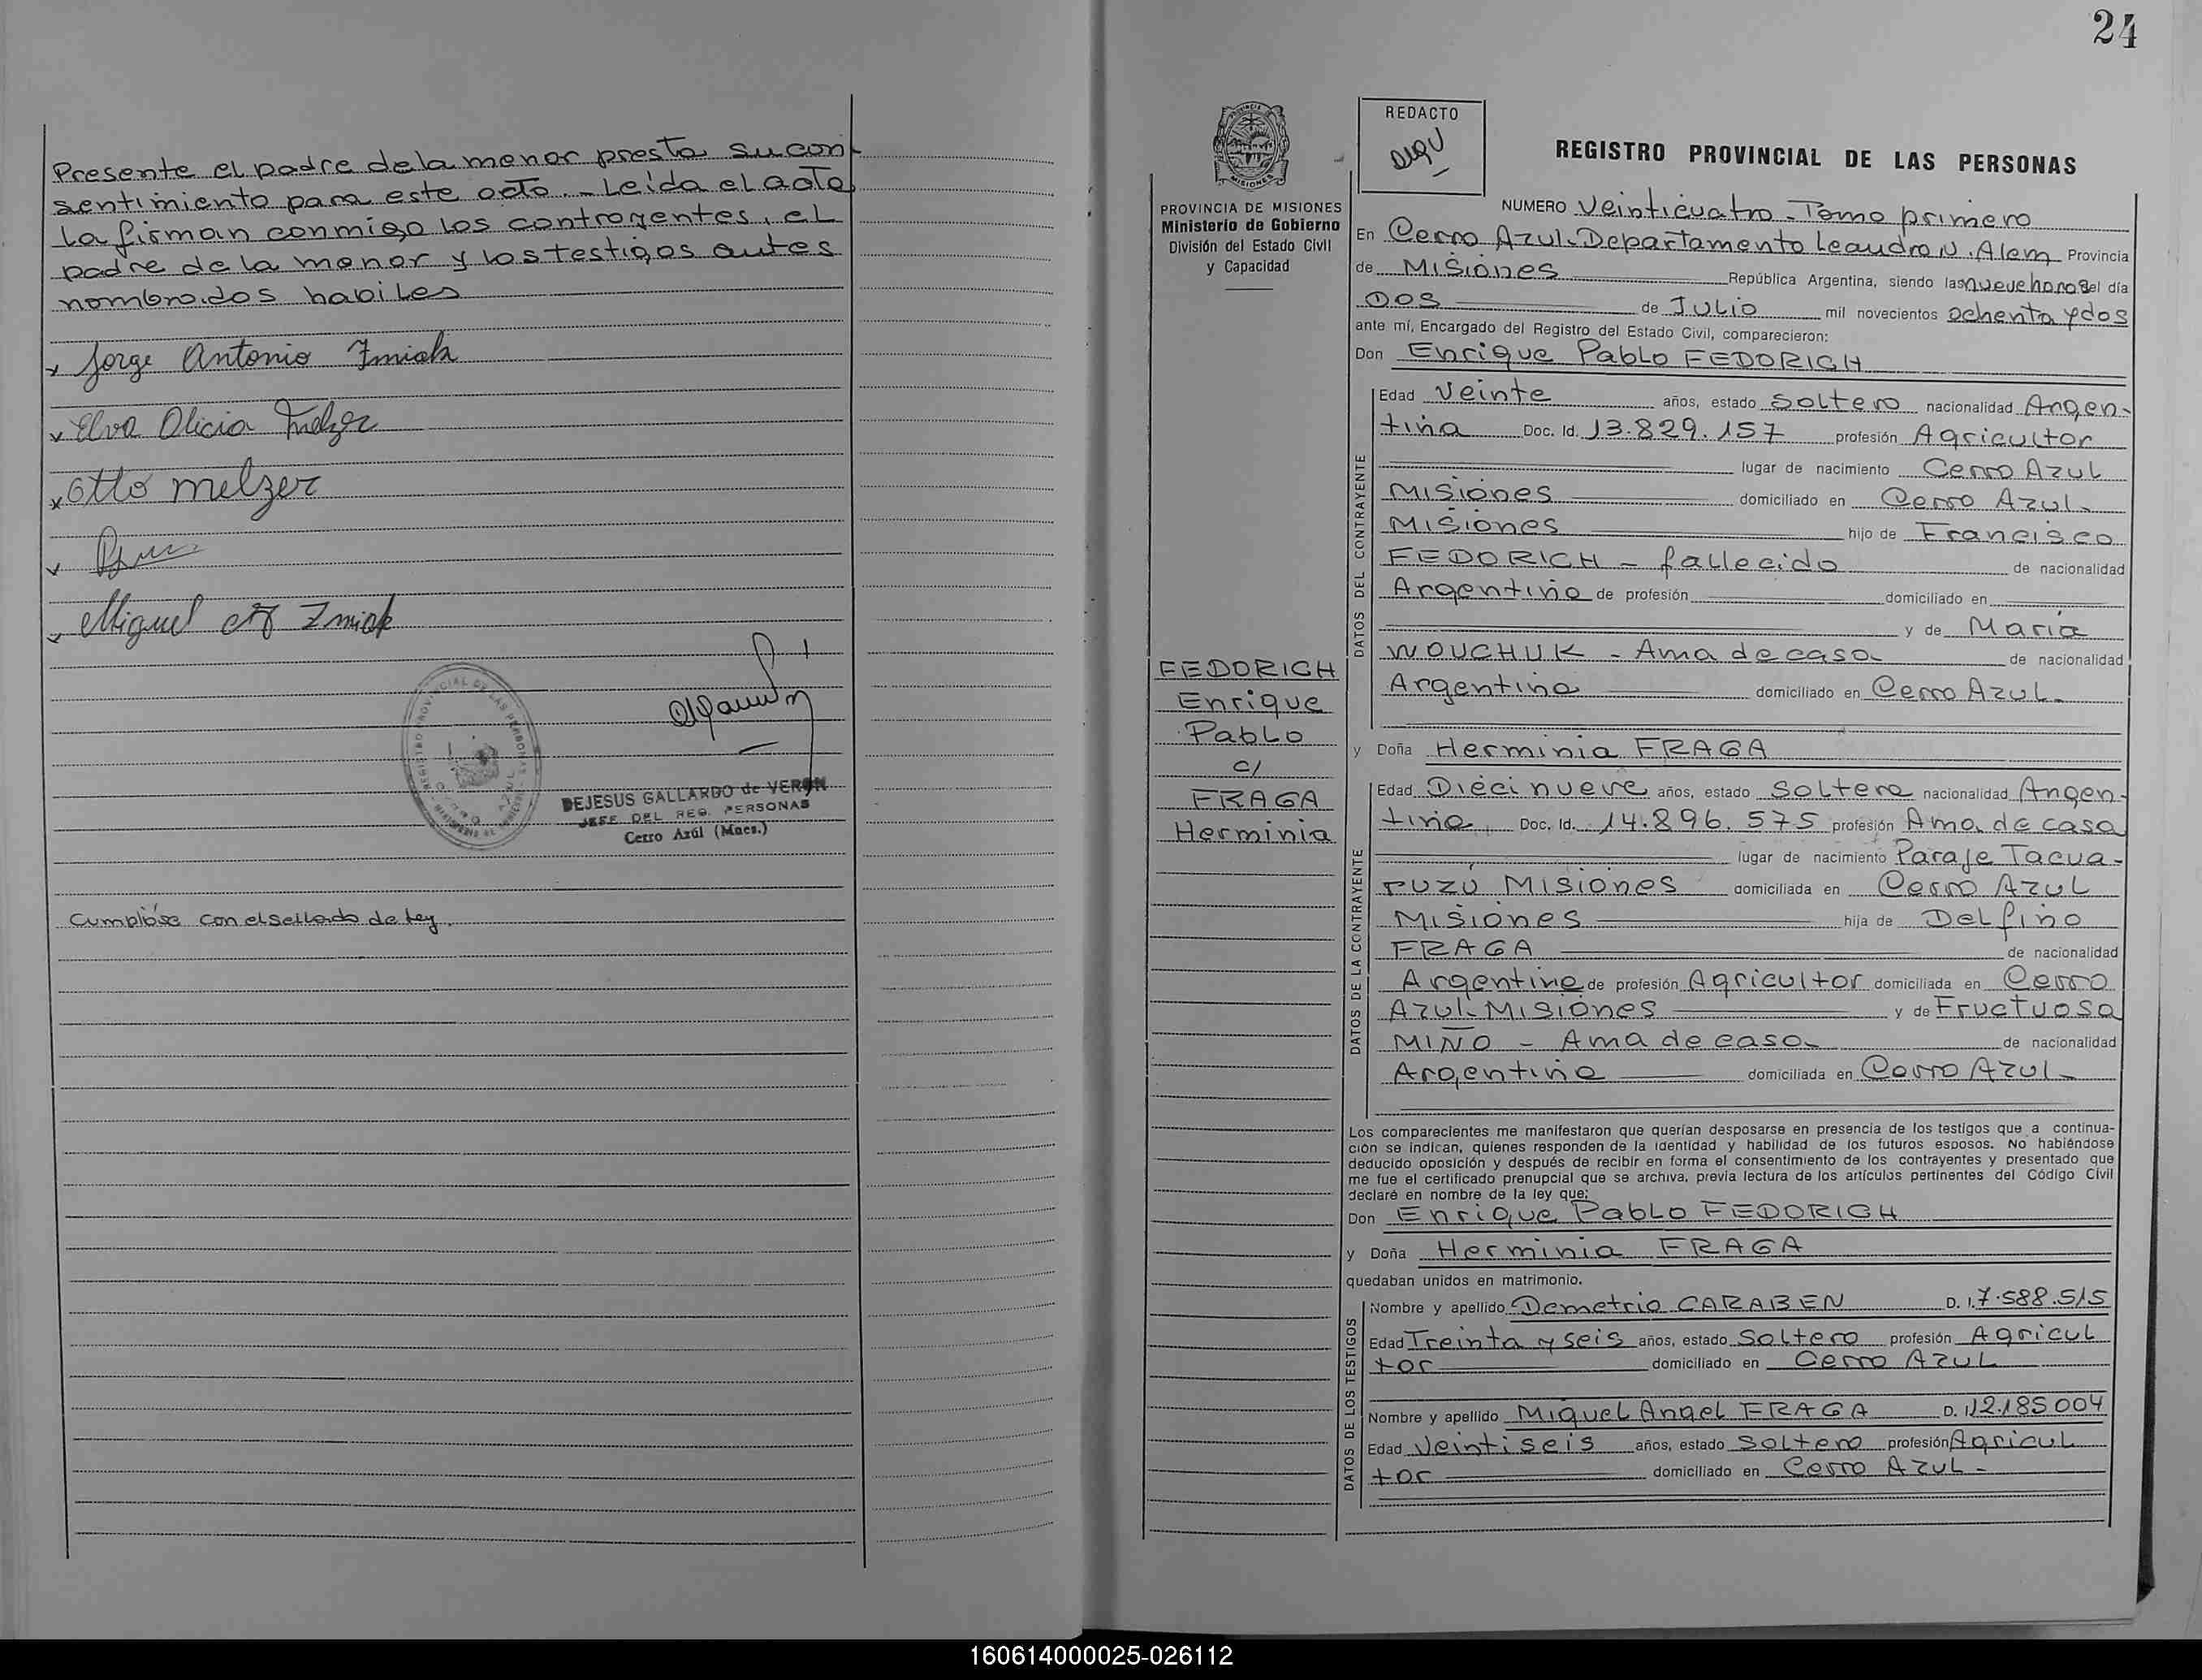 Presente el padre de la menor presta su con
sentimiento para este acto. - Leída el acta
la firman conmigo los contrayentes, el
padre de la menor y los testigos antes
nombrados habiles
Jorge Antonio Zmiak
Elva Alicia Melzer
Otto Melzer
Miguel Zmiak
DEJESUS GALLARDO de VERON
JEFE DEL REG. PERSONAS
Cerro Azúl (Mnes.)
Cumplióse con el sellado de ley.
24
REDACTO
REGISTRO PROVINCIAL DE LAS PERSONAS
PROVINCIA DE MISIONES
Ministerio de Gobierno
División del Estado Civil
y Capacidad
FEDORICH
Enrique
Pablo
c/
FRAGA
Herminia
NUMERO Veinticuatro - Tomo primero
En Cerro Azul - Departamento Leandro N. Alem Provincia
de Misiones República Argentina, siendo las nueve horas del día
DOS de Julio mil novecientos ochenta y dos
ante mí, Encargado del Registro del Estado Civil, comparecieron:
Don Enrique Pablo FEDORICH
DATOS DEL CONTRAYENTE
Edad Veinte años, estado Soltero nacionalidad Argen-
tina Doc. Id. 13.829.157 profesión Agricultor
lugar de nacimiento Cerro Azul
Misiones domiciliado en Cerro Azul -
Misiones hijo de Francisco
FEDORICH - fallecido de nacionalidad
Argentina de profesión domiciliado en
y de María
WOUCHUK - Ama de casa de nacionalidad
Argentina domiciliado en Cerro Azul -
y Doña Herminia FRAGA
DATOS DE LA CONTRAYENTE
Edad Diecinueve años, estado Soltera nacionalidad Argen-
tina Doc. Id. 14.896.575 profesión Ama de casa
lugar de nacimiento Paraje Tacua-
ruzú Misiones domiciliada en Cerro Azul
Misiones hija de Delfino
FRAGA de nacionalidad
Argentina de profesión Agricultor domiciliada en Cerro
Azul - Misiones y de Fructuosa
MIÑO - Ama de casa - de nacionalidad
Argentina domiciliada en Cerro Azul -
Los comparecientes me manifestaron que querían desposarse en presencia de los testigos que a continua-
ción se indican, quienes responden de la identidad y habilidad de los futuros esposos. No habiéndose
deducido oposición y después de recibir en forma el consentimiento de los contrayentes y presentado que
me fue el certificado prenupcial que se archiva, previa lectura de los artículos pertinentes del Código Civil
declaré en nombre de la ley que:
Don Enrique Pablo FEDORICH
y Doña Herminia FRAGA
quedaban unidos en matrimonio.
DATOS DE LOS TESTIGOS
Nombre y apellido Demetrio CARABEN D. I. 7.588.515
Edad Treinta y seis años, estado Soltero profesión Agricul
tor domiciliado en Cerro Azul
Nombre y apellido Miguel Angel FRAGA D. I. 12.185.004
Edad Veintiseis años, estado Soltero profesión Agricul
tor domiciliado en Cerro Azul -
160614000025-026112